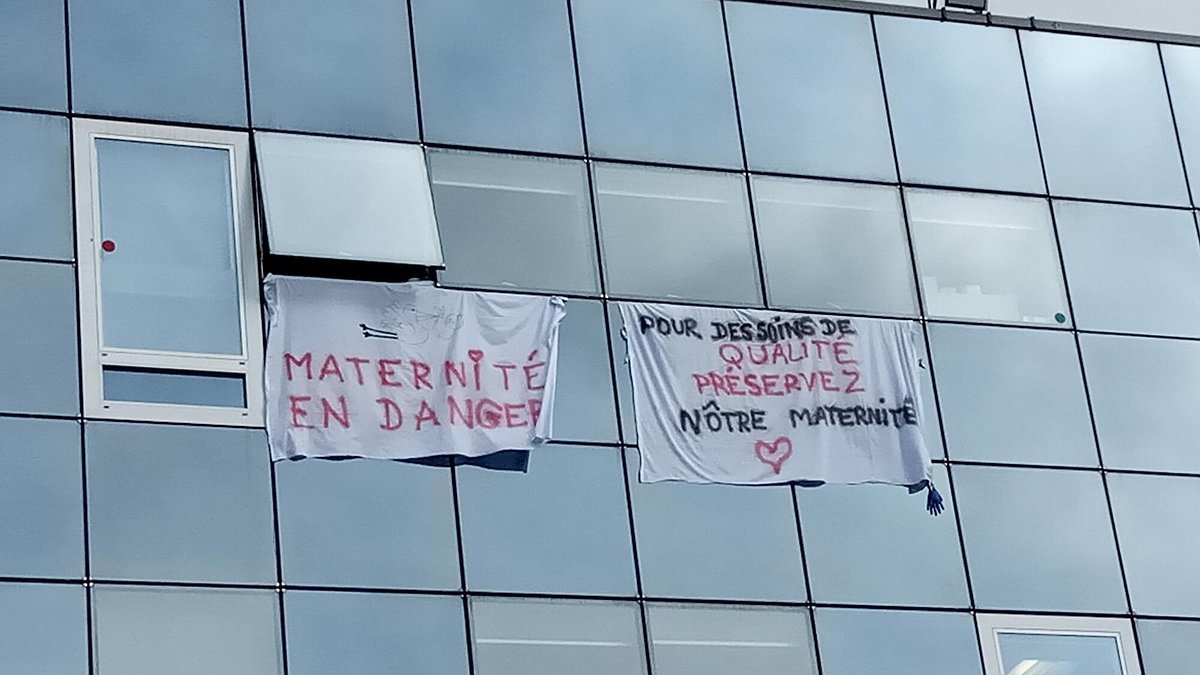 MATERNiTÉ
EN DANGER
POUR DES SOiNS DE
QUALITÉ
PRÉSERVEZ
NÔTRE MATERNiTÉ